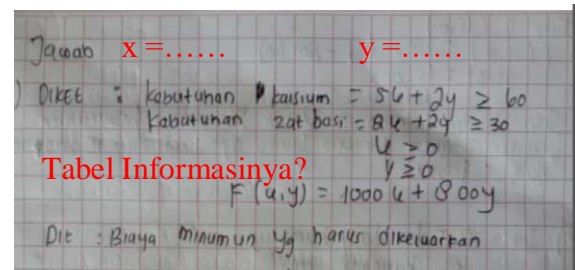 Jawab x =…… y =……
) DIKET : kebutuhan kalsium = 5x + 2y ≥ 60
kebutuhan zat besi = 2x + 2y ≥ 30
x ≥ 0
Tabel Informasinya? y ≥ 0
F (x,y) = 1000 x + 800y
Dit : Biaya minumun yg harus dikeluarkan